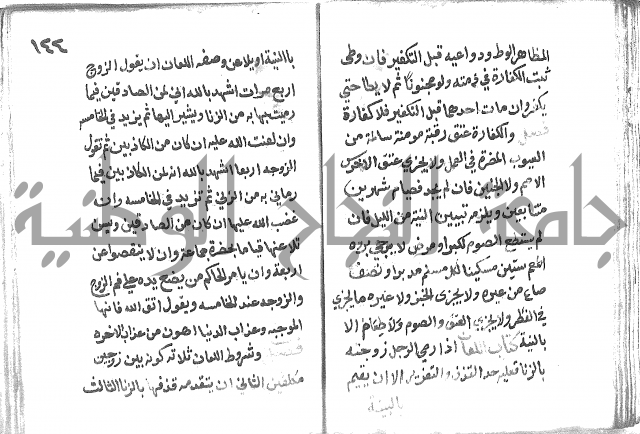 المظاهر الوطء ودواعيه قبل التكفير فان وطئ
ثبت الكفارة في ذمته ولو مجنونا ثم لا يطا حتي
يكفر وان مات احدهما قبل التكفير فلا كفارة
فصل والكفارة عتق رقبة مومنة سالمة من
العيوب المضرة في العمل ولا يجزي عتق الاخرس
الاصم ولا الجنين فان لم يجد فصيام شهرين
متتابعين ويلزمه تبييت النية من الليل فان
لم يستطع الصوم لكبر او مرض لا يرجي برءه
اطعم ستين مسكينا لكل مسكين مد بر او نصف
صاع من غيره ولا يجزى الخبز ولا غير ما يجزي
في الفطر ولا يجزي العتق والصوم والاطعام الا
بالنية كتاب اللعان اذا رمي الرجل زوجته
بالزنا فعليه حد القذف والتعزير الا ان يقيم
بالبينة
١٢٢
باالنية او يلاعن وصفة اللعان ان يقول الزوج
اربع مرات اشهد بالله اني لمن الصادقين فيما
رميتها به من الزنا ويشير اليها ثم يزيد في الخامسه
وان لعنت الله عليه ان كان من الكاذبين ثم تقول
الزوجه اربعا اشهد بالله انه لمن الكاذبين فيما
رماني به من الزني ثم تزيد في الخامسه وان
غضب الله عليها ان كان من الصادقين ويسن
تلاعنهما قياما بحضرة جماعة وان لا ينقصوا عن
اربعة وان يامر الحاكم من يضع يده علي فم الزوج
والزوجه عند الخامسه ويقول اتق الله فانها
الموجبه وعذاب الدنيا اهون من عذاب الاخره
فصل وشروط اللعان ثلاثه كونه بين زوجين
مكلفين الثاني ان يتقدمه قذفها بالزنا الثالث
جامعة النجاح الوطنية